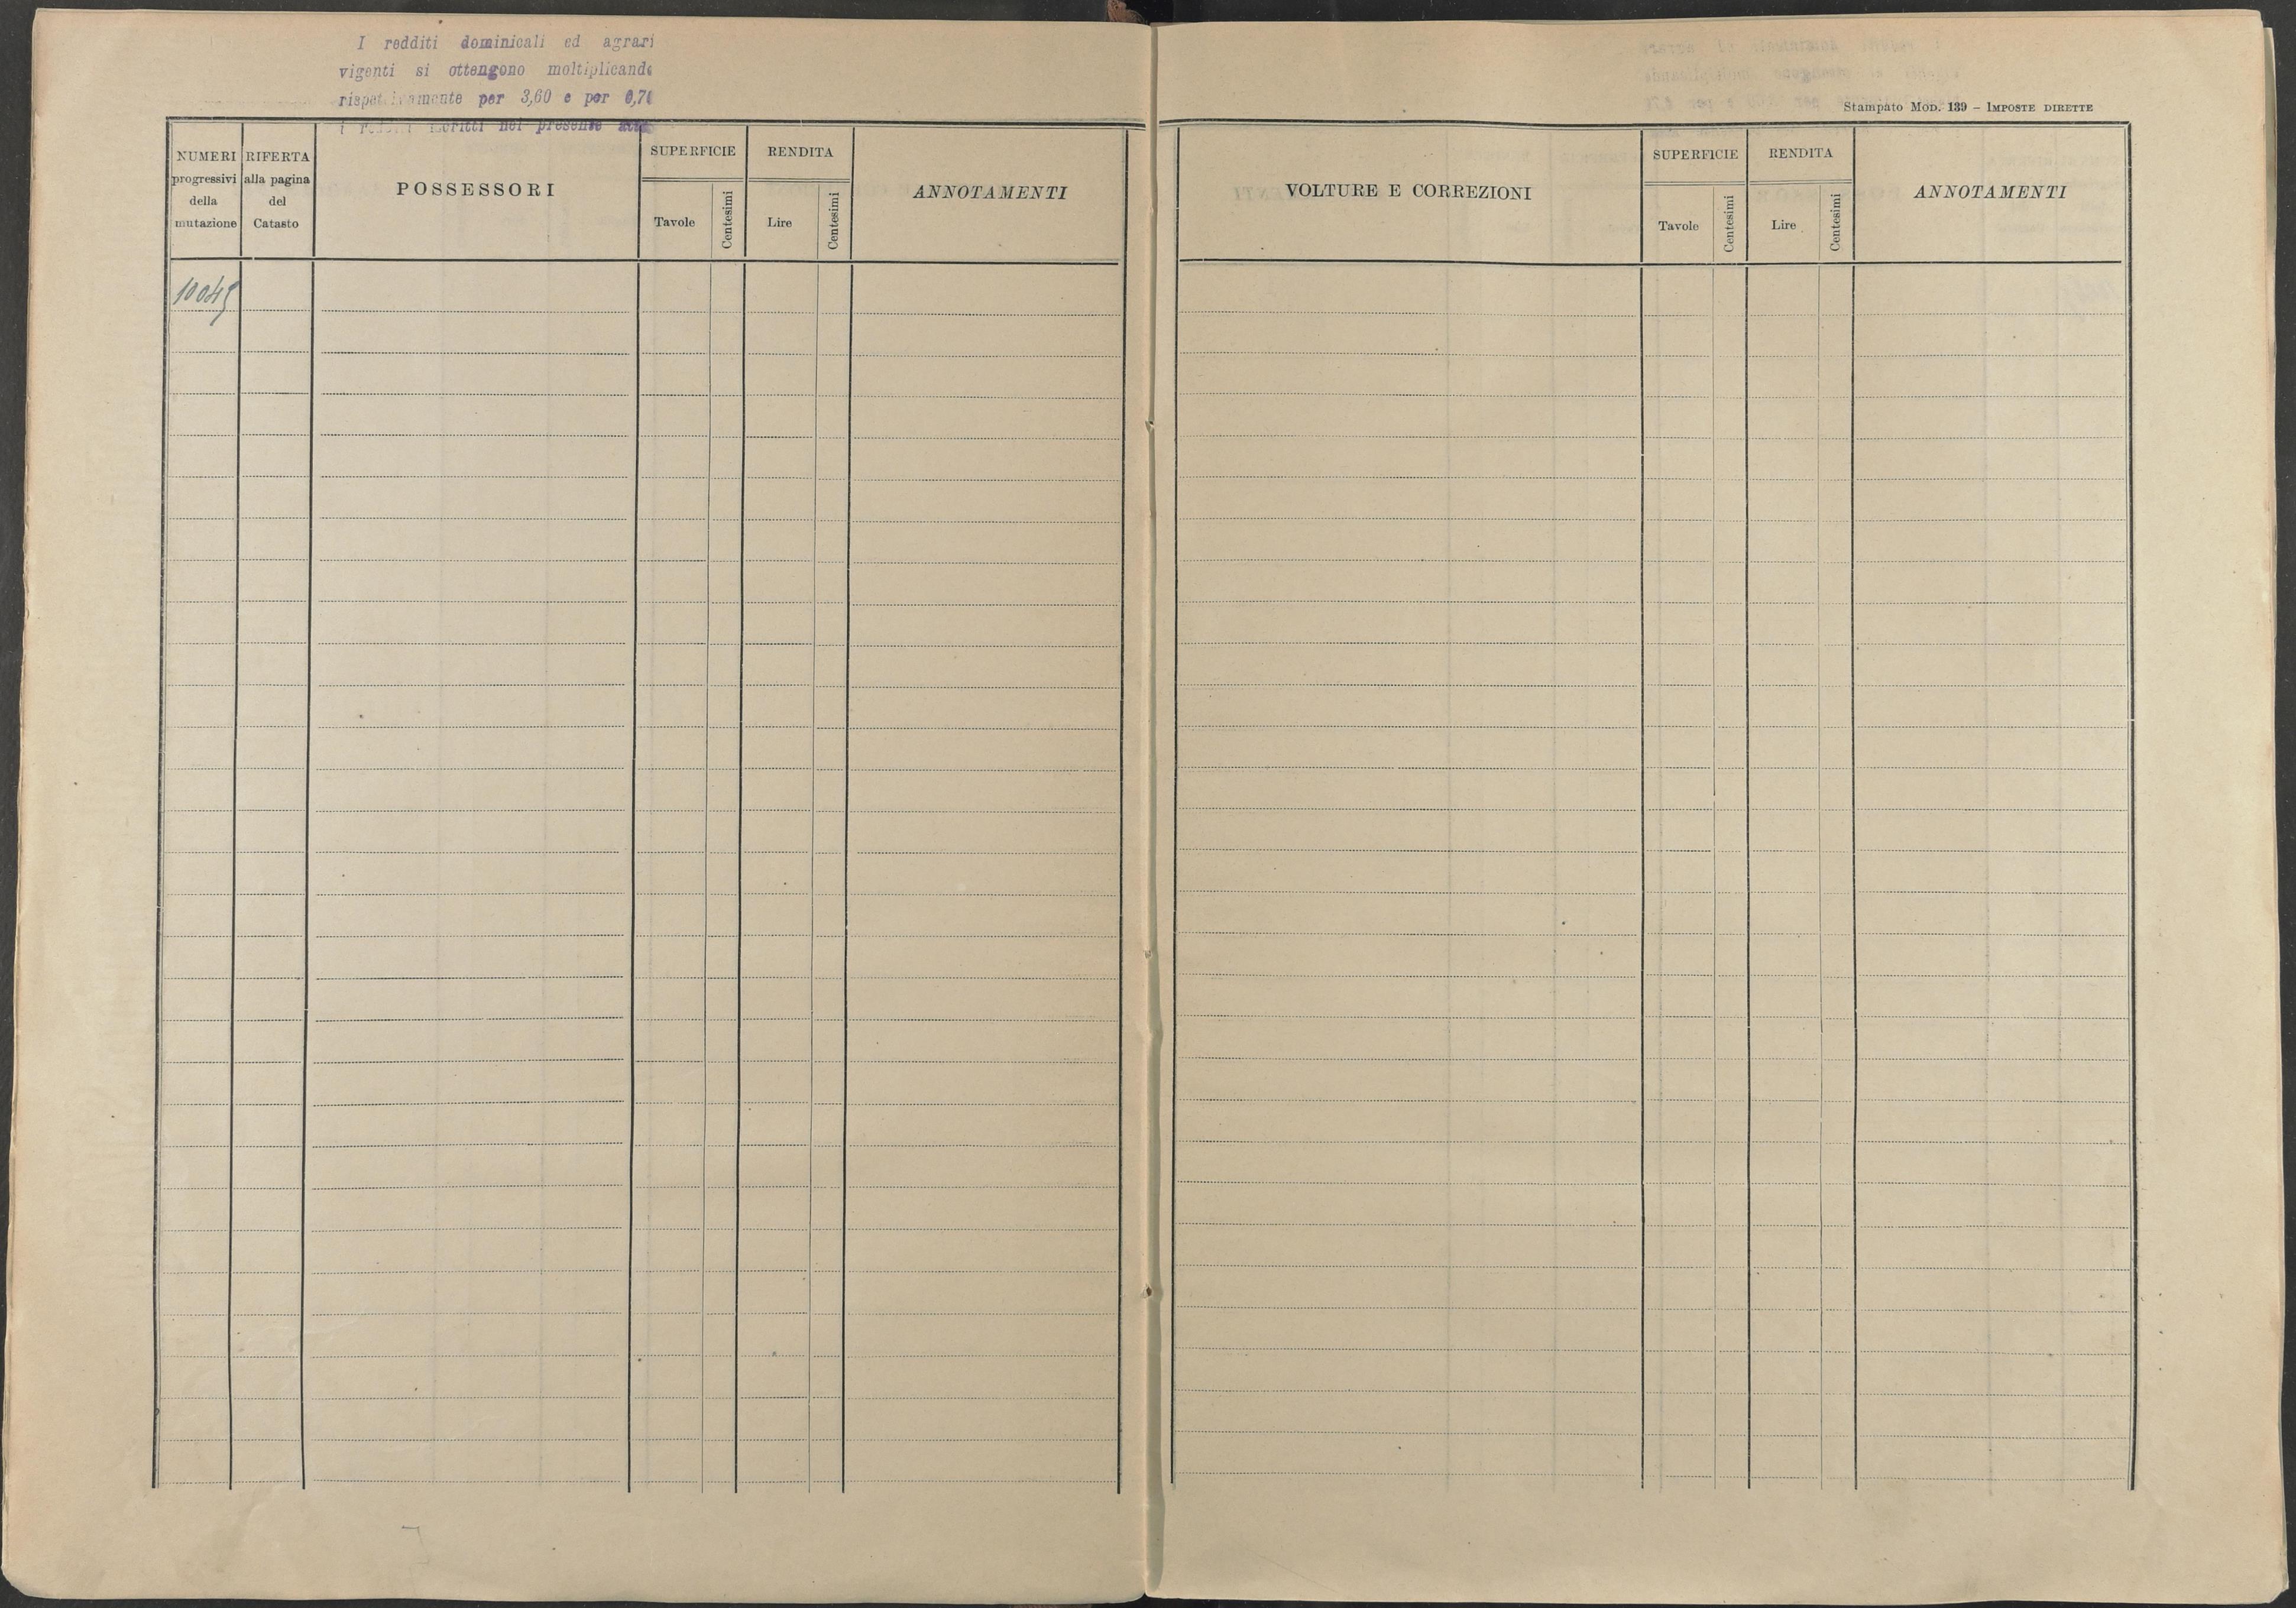 I redditi dominicali ed agrari
vigenti si ottengono moltiplicando
rispettivamente per 3,60 e per 0,70
i redditi iscritti nel presente atto
Stampato MOD. 139 – IMPOSTE DIRETTE
NUMERI
progressivi
della
mutazione
RIFERTA
alla pagina
del
Catasto
POSSESSORI
SUPERFICIE
Tavole
Centesimi
RENDITA
Lire
Centesimi
ANNOTAMENTI
VOLTURE E CORREZIONI
SUPERFICIE
Tavole
Centesimi
RENDITA
Lire
Centesimi
ANNOTAMENTI
10045